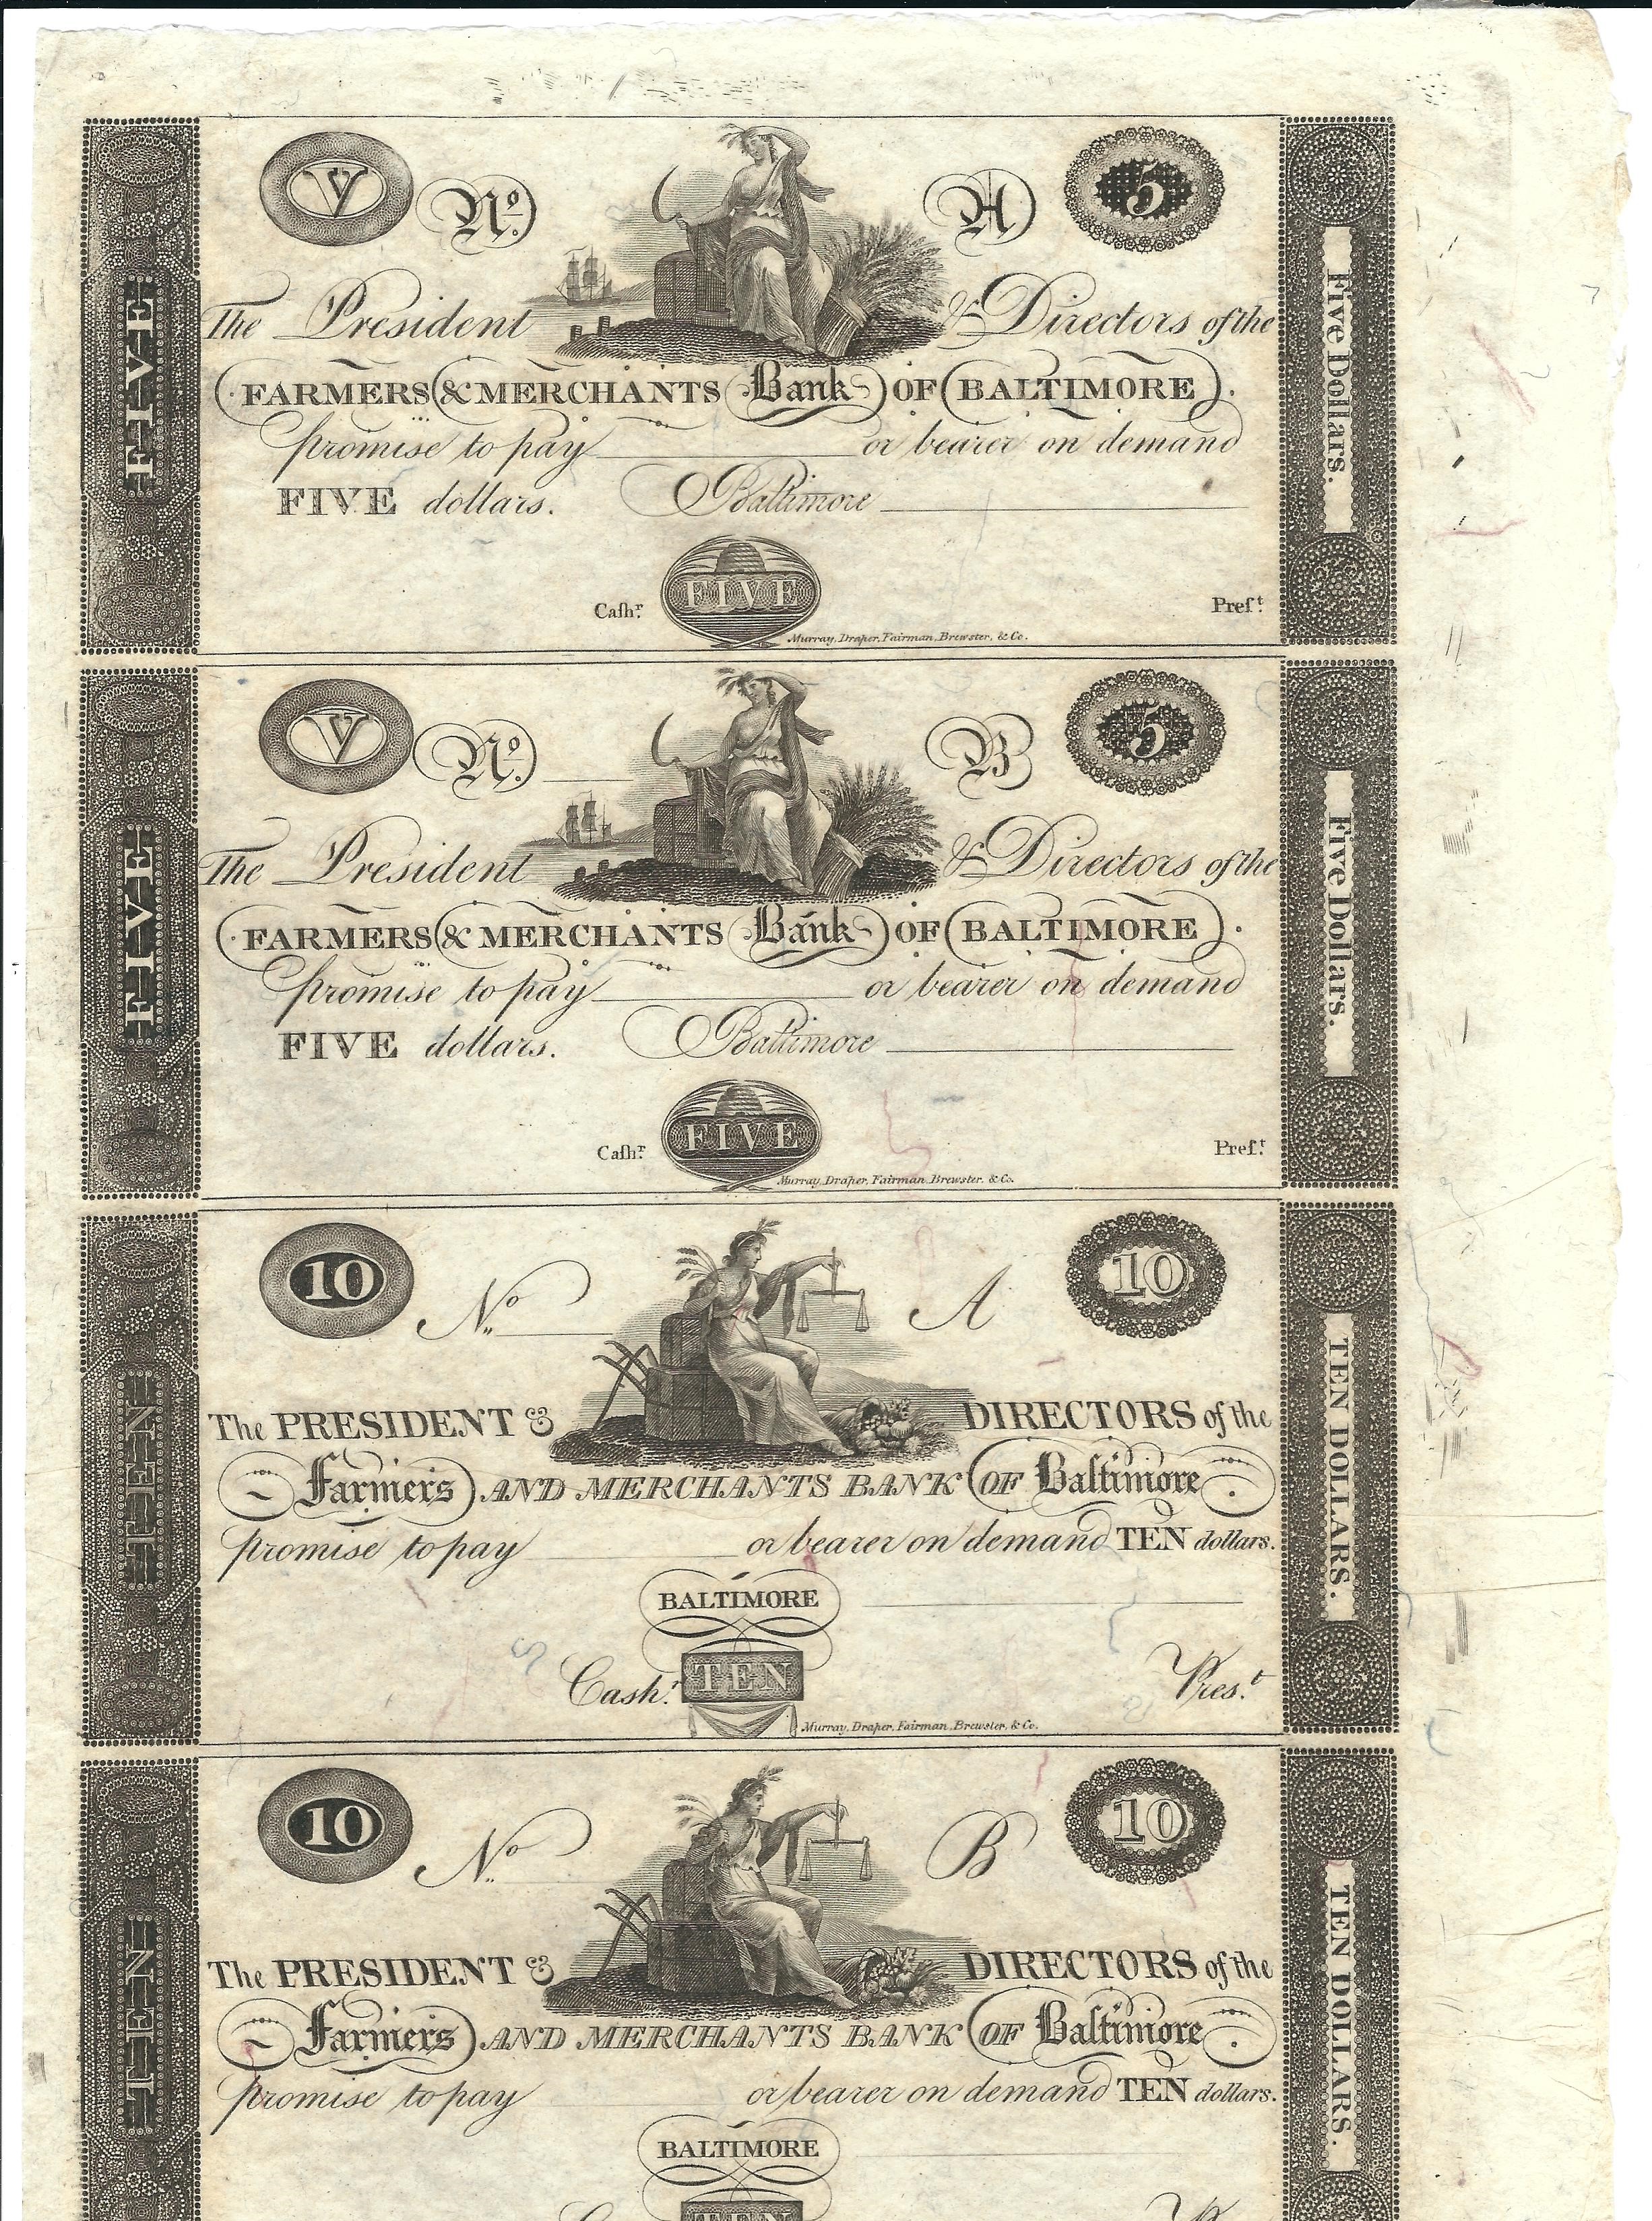 V No. A 5
FIVE
The President & Directors of the
FARMERS & MERCHANTS Bank OF BALTIMORE.
promise to pay or bearer on demand
FIVE dollars. Baltimore
Five Dollars.
Caſhr. FIVE Preſt.
Murray, Draper, Fairman, Brewster, & Co.
V No. B 5
FIVE
The President & Directors of the
FARMERS & MERCHANTS Bank OF BALTIMORE.
promise to pay or bearer on demand
FIVE dollars. Baltimore
Five Dollars.
Caſhr. FIVE Preſt.
Murray, Draper, Fairman, Brewster, & Co.
10 No A 10
TEN
The PRESIDENT & DIRECTORS of the
Farmers AND MERCHANTS BANK OF Baltimore
promise to pay or bearer on demand TEN dollars.
TEN DOLLARS.
BALTIMORE
Cashr. TEN Prest.
Murray, Draper, Fairman, Brewster, & Co.
10 No B 10
TEN
The PRESIDENT & DIRECTORS of the
Farmers AND MERCHANTS BANK OF Baltimore
promise to pay or bearer on demand TEN dollars.
TEN DOLLARS.
BALTIMORE
TEN